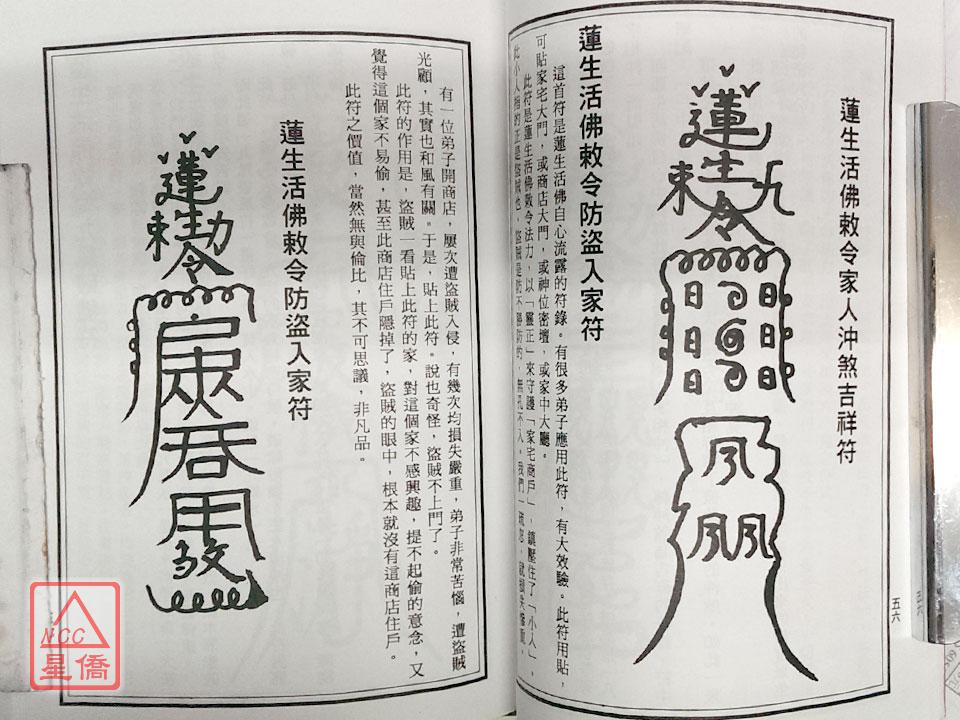 蓮生活佛敕令家人沖煞吉祥符
蓮生活佛敕令防盜入家符
這首符是蓮生活佛自心流露的符錄。有很多弟子應用此符，有大效驗。此符用貼，
可貼家宅大門，或商店大門，或神位密壇，或家中大廳。
此符是蓮生活佛敕令法力，以「靈正」來守護「家宅商戶」，鎮壓住了「小人」，
此小人指的正是盜賊也，盜賊是防不勝防的，無孔不入，我們一疏忽，就損失慘重，
五六
有一位弟子開商店，屢次遭盜賊入侵，有幾次均損失嚴重，弟子非常苦惱，遭盜賊
光顧，其實也和風有關。于是，貼上此符。說也奇怪，盜賊不上門了。
此符的作用是，盜賊一看貼上此符的家，對這個家不感興趣，提不起偷的意念，又
覺得這個家不易偷，甚至此商店住戶隱掉了，盜賊的眼中，根本就沒有這商店住戶。
此符之價值，當然無與倫比，其不可思議，非凡品。
蓮生活佛敕令防盜入家符
NCC
星僑